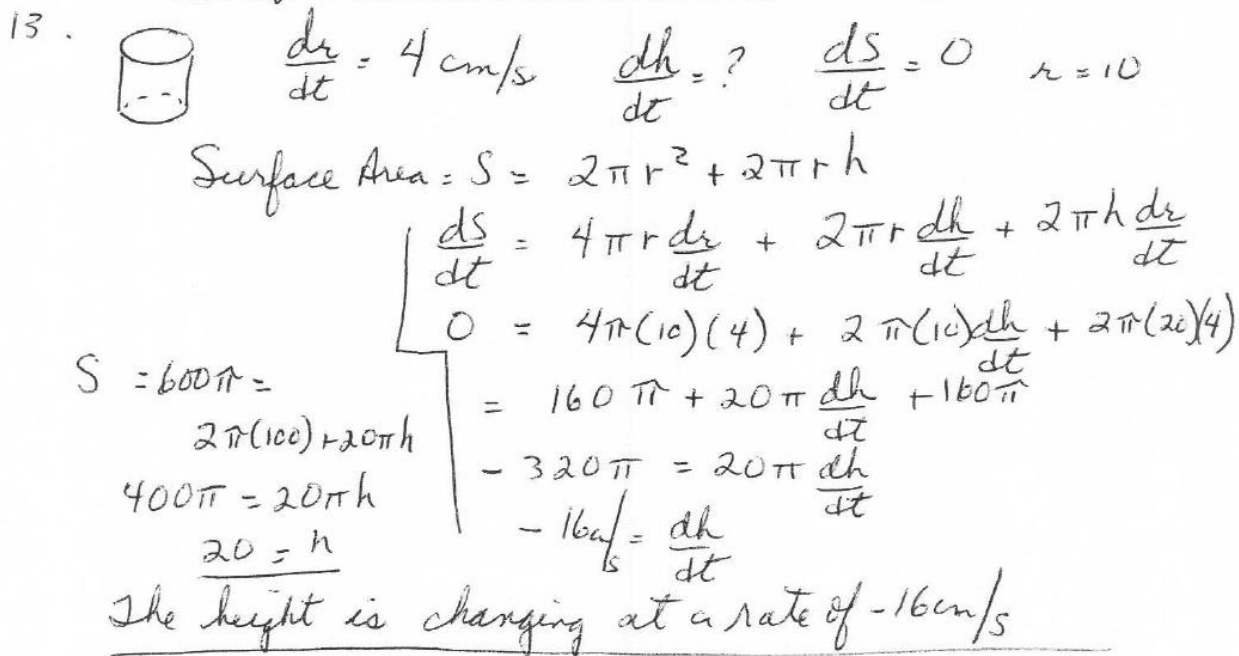 13.
dr/dt = 4 cm/s dh/dt = ? ds/dt = 0 r = 10
Surface Area = S = 2πr² + 2πrh
ds/dt = 4πr dr/dt + 2πr dh/dt + 2πh dr/dt
0 = 4π(10)(4) + 2π(10) dh/dt + 2π(20)(4)
= 160π + 20π dh/dt + 160π
-320π = 20π dh/dt
-16cm/s = dh/dt
S = 600π =
2π(100)+20πh
400π = 20πh
20 = h
The height is changing at a rate of -16cm/s